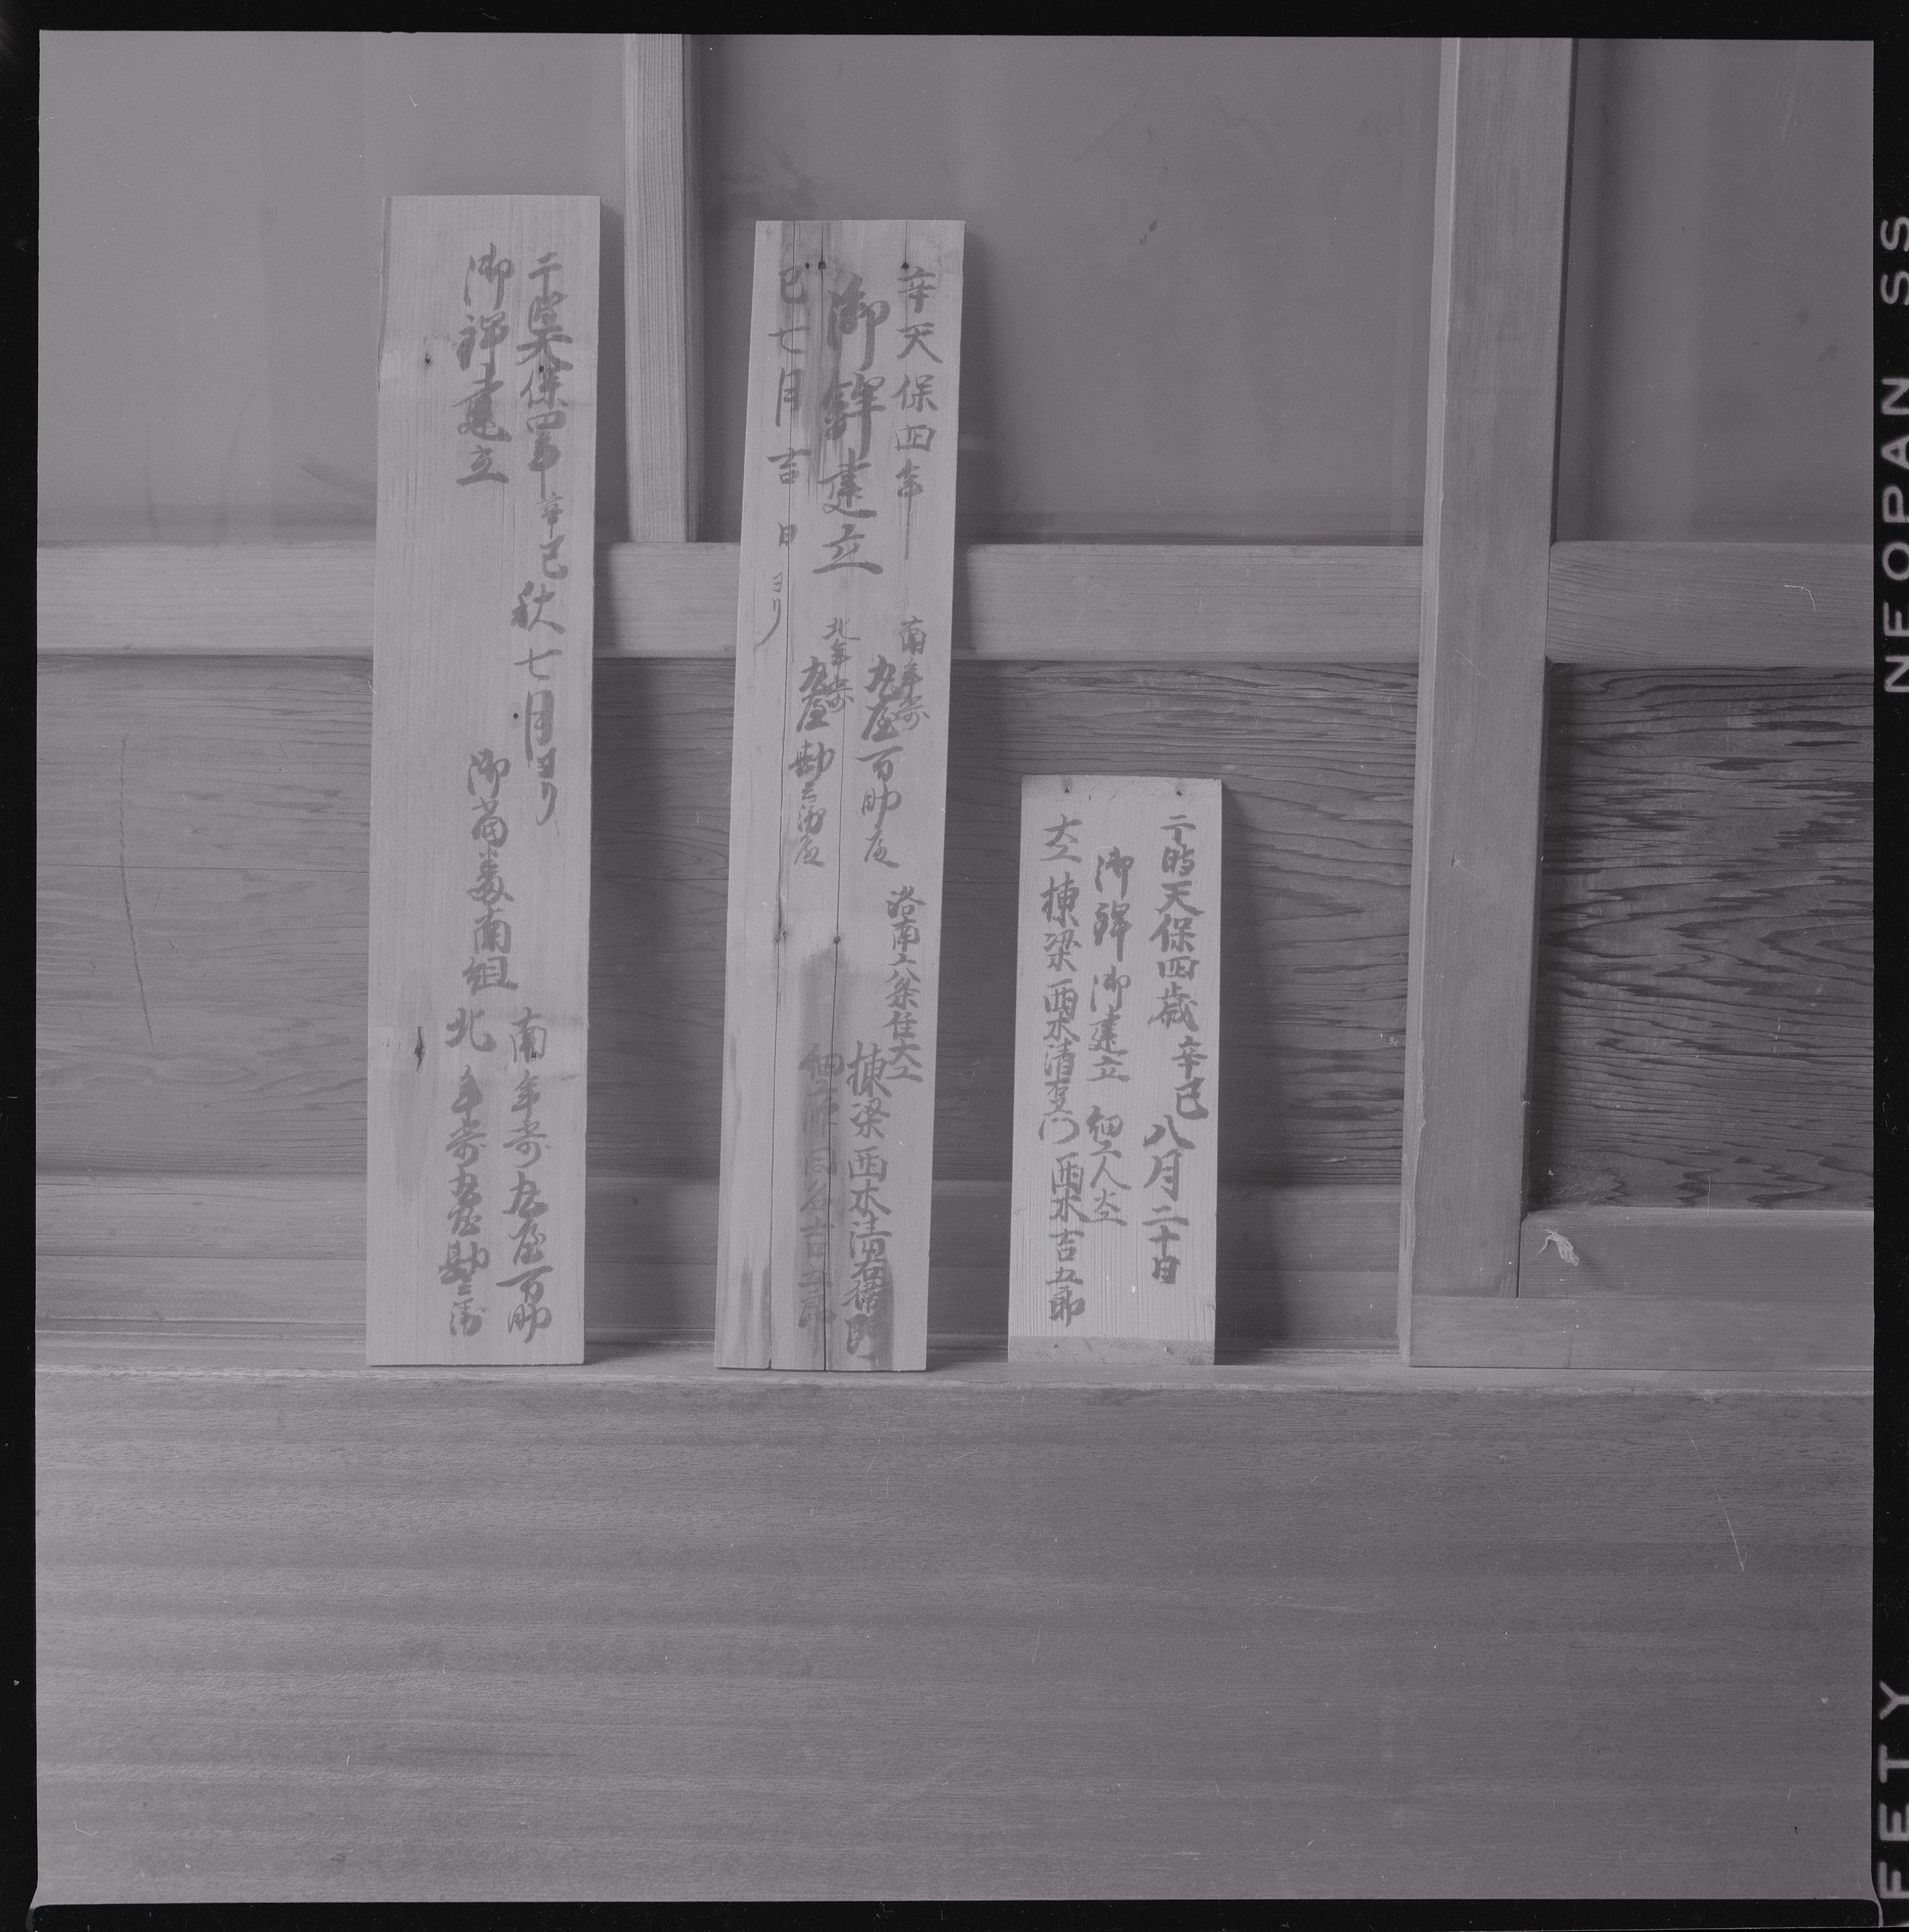 天保四年
辛巳秋七月ヨリ
御
建立
御
南組
南年寄丸屋百助
北年寄丸屋勘兵衛
辛天保四年
御鉾建立
巳七月吉日ヨリ
南年寄
丸屋百助
北年寄
丸屋勘兵衛
洛南六八条住大工
棟梁西木清右衛門
細工師同名吉五郎
于時天保四歳辛巳八月二十日
御鉾御建立細工人大工
大工棟梁西木清右衛門西木吉五郎
NEOPAN SS
FETY